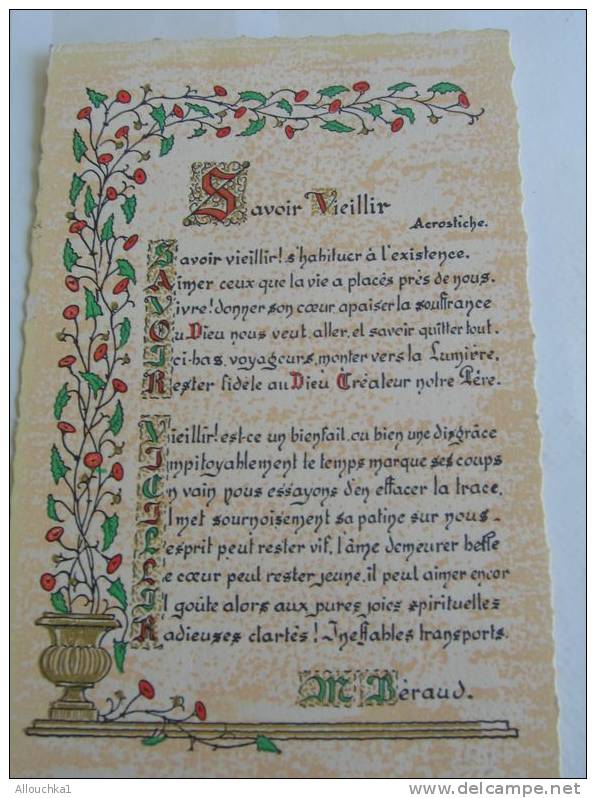 Savoir Vieillir
Acrostiche.
Savoir vieillir! s'habituer à l'existence.
Aimer ceux que la vie a placés près de nous.
Vivre! donner son cœur, apaiser la souffrance
Ou Dieu nous veut, aller, et savoir quitter tout.
Ici-bas, voyageurs, monter vers la Lumière,
Rester fidèle au Dieu Créateur notre Père.
Vieillir! est-ce un bienfait, ou bien une disgrâce
Impitoyablement le temps marque ses coups
En vain nous essayons d'en effacer la trace,
Il met sournoisement sa patine sur nous-
L'esprit peut rester vif, l'âme demeurer belle
Le cœur peut rester jeune, il peut aimer encor
Il goûte alors aux pures joies spirituelles
Radieuses clartés! Ineffables transports.
M Béraud.
Allouchka1
www.delcampe.net